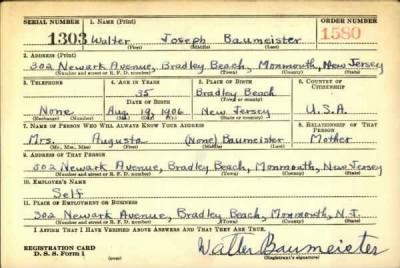 SERIAL NUMBER 1. NAME (Print) ORDER NUMBER
1303 Walter Joseph Baumeister 1580
(First) (Middle) (Last)
2. ADDRESS (Print)
302 Newark Avenue, Bradley Beach, Monmouth, New Jersey
(Number and street or R. F. D. number) (Town) (County) (State)
3. TELEPHONE 4. AGE IN YEARS 5. PLACE OF BIRTH 6. COUNTRY OF CITIZENSHIP
35 Bradley Beach
DATE OF BIRTH (Town or county)
None Aug. 19, 1906 New Jersey U.S.A.
(Mo.) (Day) (Yr.) (State or country)
7. NAME OF PERSON WHO WILL ALWAYS KNOW YOUR ADDRESS 8. RELATIONSHIP OF THAT PERSON
Mrs. Augusta (None) Baumeister Mother
(Mr., Mrs., Miss) (First) (Middle) (Last)
9. ADDRESS OF THAT PERSON
302 Newark Avenue, Bradley Beach, Monmouth, New Jersey
(Number and street or R. F. D. number) (Town) (County) (State)
10. EMPLOYER'S NAME
Self
11. PLACE OF EMPLOYMENT OR BUSINESS
302 Newark Avenue, Bradley Beach, Monmouth, N.J.
(Number and street or R. F. D. number) (Town) (County) (State)
I AFFIRM THAT I HAVE VERIFIED ABOVE ANSWERS AND THAT THEY ARE TRUE.
REGISTRATION CARD
D. S. S. Form 1 Walter Baumeister
(Registrant's signature)